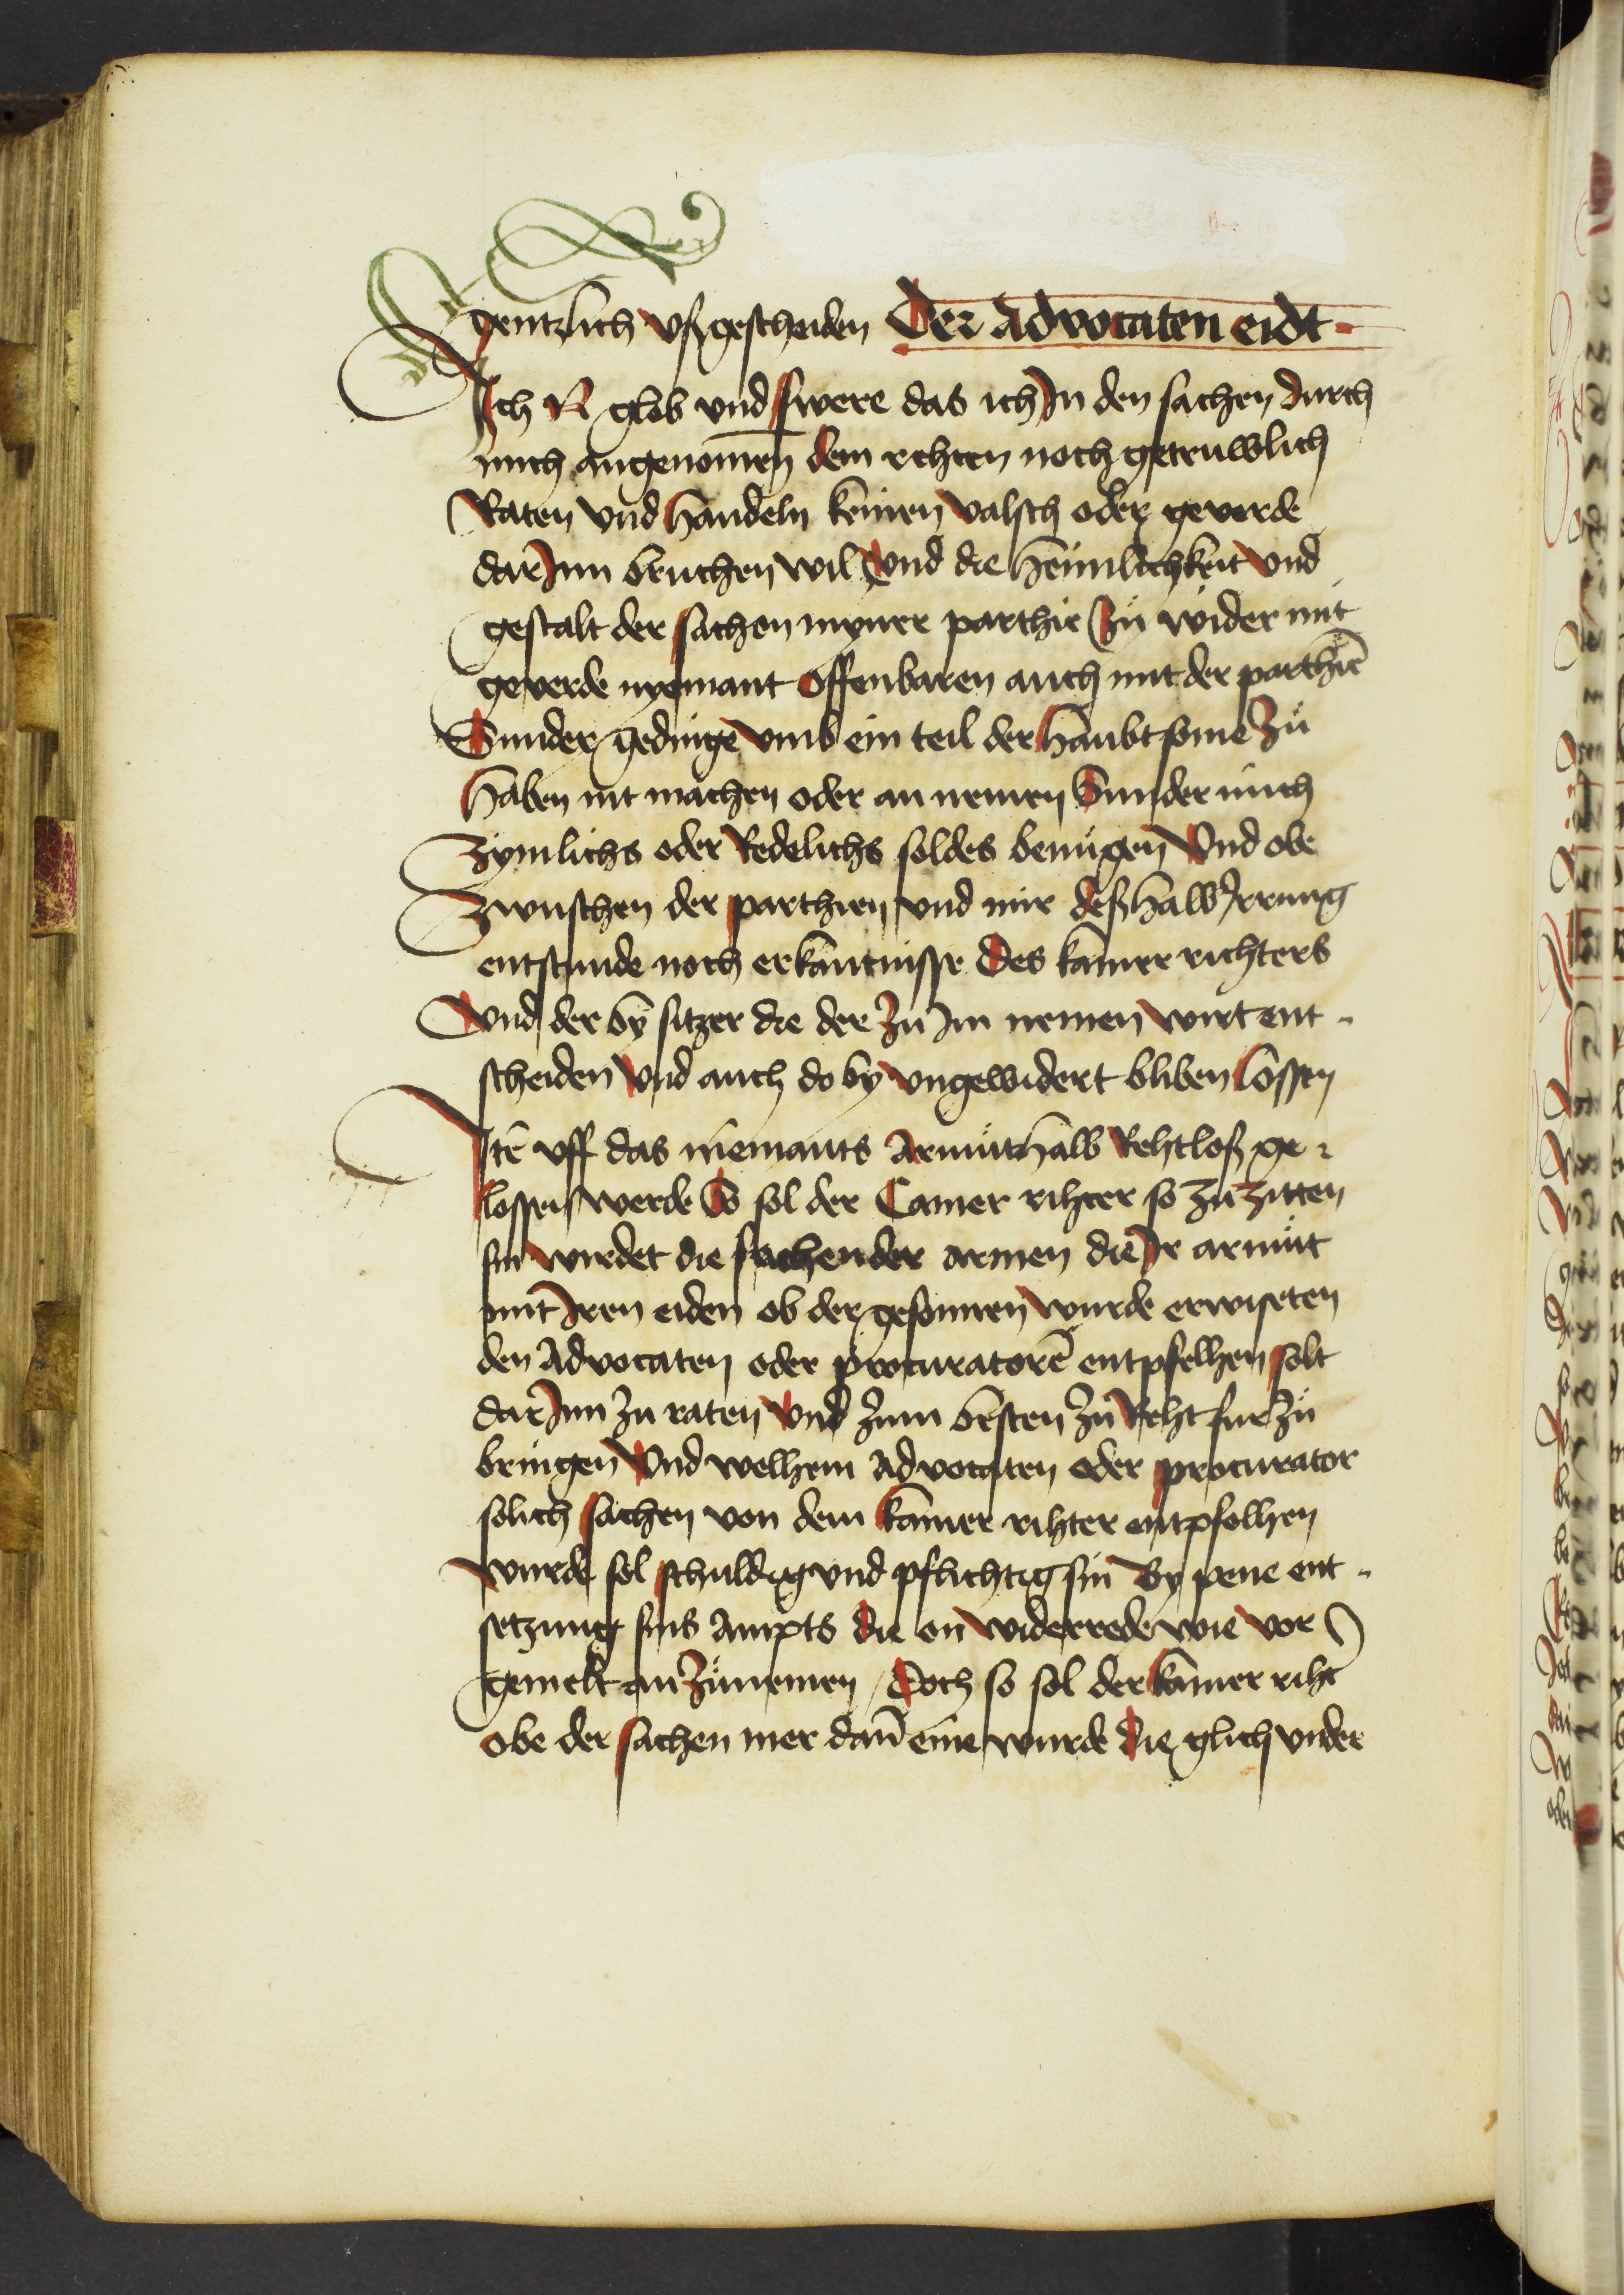 gentzlich vßgescheiden Der Advocaten eidt
Ich N glob vnd swere das ich Jn den sachen durch
mich angenomen dem rehten noch getruwlich
Raten vnd handeln keinen valsch oder geverde
dar Jnn bruchen wil Vnd die heimlichkeit vnd
gestalt der sachen myner parthie Zů wider mit
geverde nyemant offenbaren auch mit der parthiē
Sunder gedinge vmb ein teil der haubt some Zů
haben nit machen oder an nemen Sunder mich
Zymlichs oder Redelichs soldes benůgen Vnd obe
Zwuschen der parthien vnd mir deßhalb Jrrung
entstunde noch erkantnisse Des kamer richters
Vnd der by sitzer die der Zů Jm nemen wirt ent-
scheiden Vnd auch do by vngewidert bliben lossen
Itē vff das niemants Armůt halb Rehtloß ge-
lossen werde So sol der Camer rihter so Zů Zitten
sin wirdet die sachen der armen die Jr armůt
mit Jren eiden ob der gesonnen wurde erwiseten
den Advocaten oder procuratorē entpfelhen solt
dar Jnn Zu raten Vnd Zum besten Zů Reht fur Zů
bringen Vnd welhem Advocaten oder procurator
solich sachen von dem kamer rihter entpfolhen
wurde sol schuldig vnd pflichtig sin By pene ent-
setzung sins Ampts die on widerrede wie vor
gemelt an Zůnemen / Doch so sol der kamer riht
obe der sachen mer dañ eine wurde die glich vnder